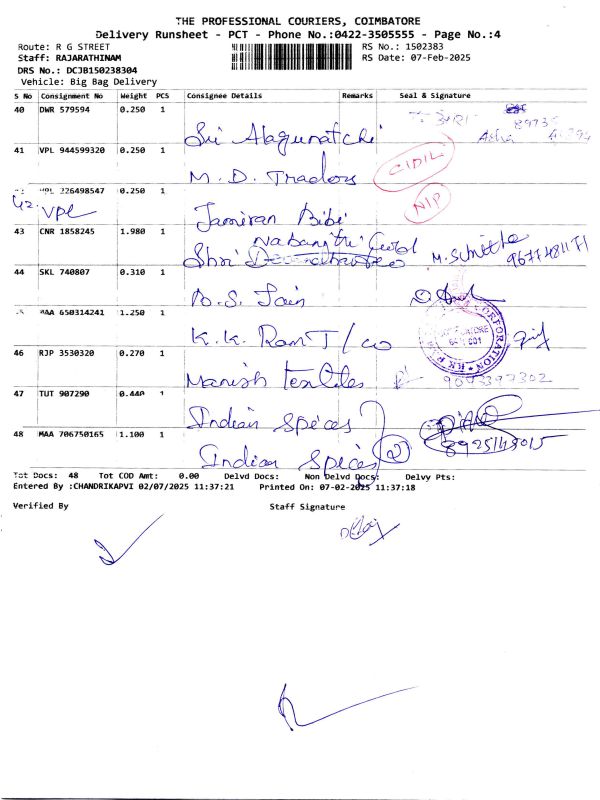 THE PROFESSIONAL COURIERS, COIMBATORE
Delivery Runsheet - PCT - Phone No.:0422-3505555 - Page No.:4
Route: R G STREET RS No.: 1502383
Staff: RAJARATHINAM RS Date: 07-Feb-2025
DRS No.: DCJB150238304
Vehicle: Big Bag Delivery
S No Consignment No Weight PCS Consignee Details Remarks Seal & Signature
40 DWR 579594 0.250 1
Sri Alagunatchi Asha
41 VPL 944599320 0.250 1
M. D. Traders CIDIL
VPL 226498547 0.250 1
42. VPL Jamiran Bibi NIP
43 CNR 1858245 1.980 1
Nabangthi Gold
Shri M. Sumithe 9677481171
44 SKL 740807 0.310 1
D. S. Jain
MAA 650314241 1.250 1
K.K. Ram T/co
46 RJP 3530320 0.270 1
Manish Textiles 9043397302
47 TUT 907290 0.440 1
Indian Spices
48 MAA 706750165 1.100 1
Indian Spices 2 8925148015
Tot Docs: 48 Tot COD Amt: 0.00 Delvd Docs: Non Delvd Docs: Delvy Pts:
Entered By :CHANDRIKAPVI 02/07/2025 11:37:21 Printed On: 07-02-2025 11:37:18
Verified By Staff Signature